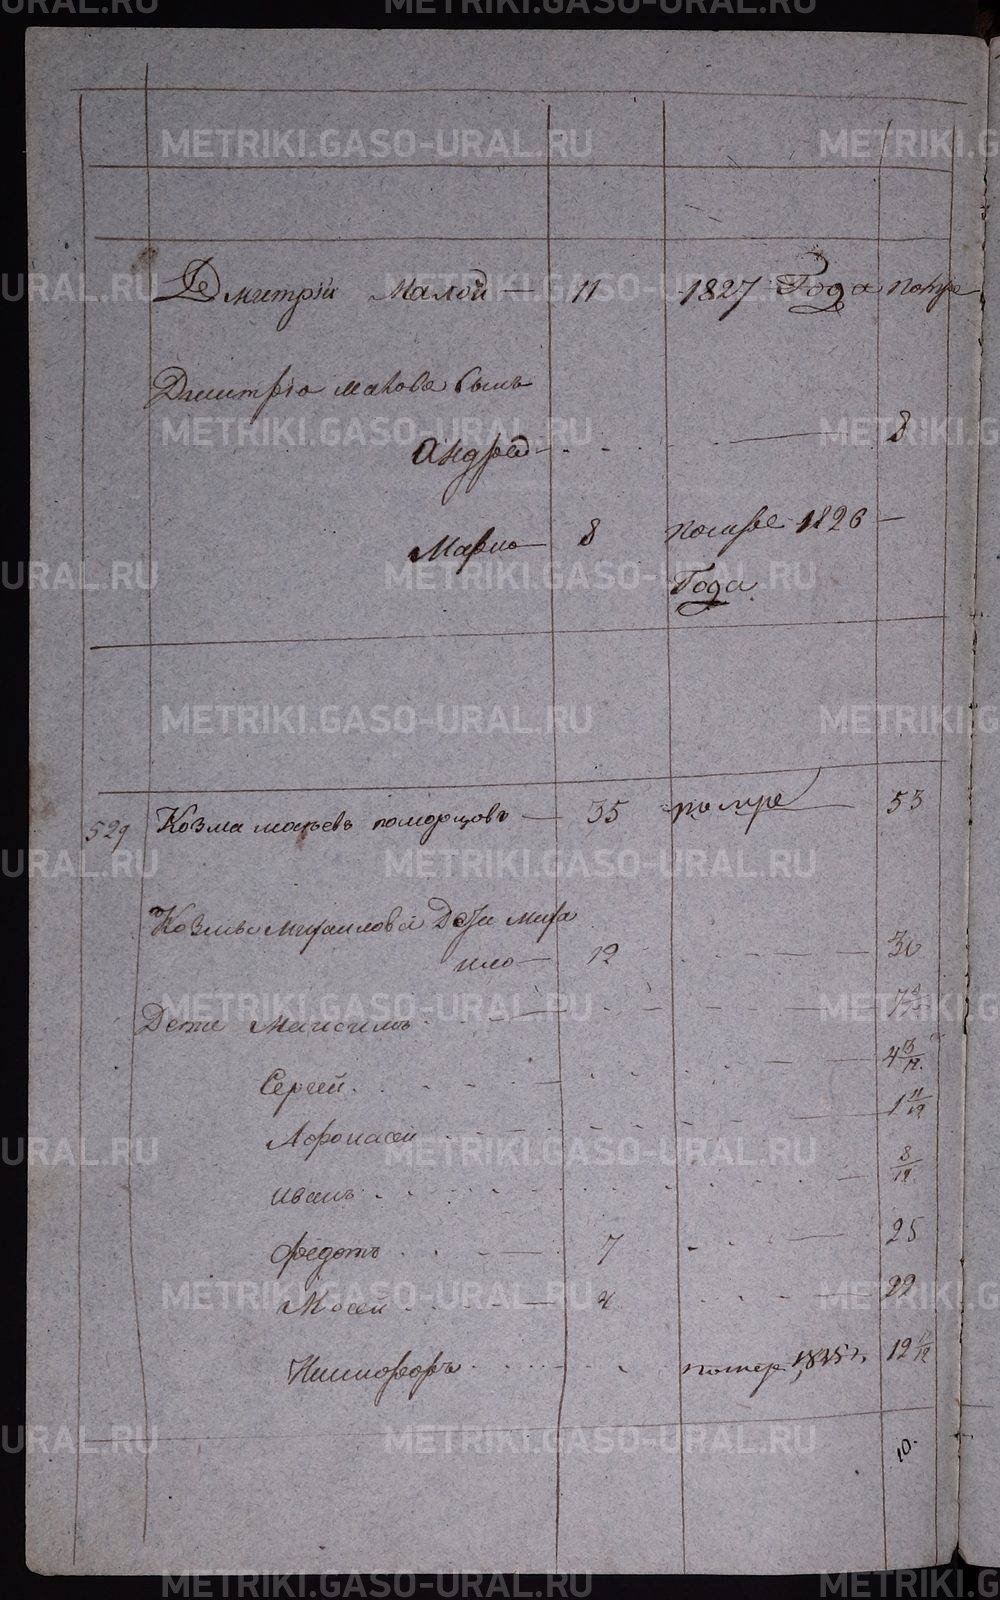 METRIKI.GASO-URAL.RU
Дмитрій Малой — 11 1827 Года помре
Дмитрія малова сынъ
Андрей 8
Марко — 8 помре 1826 —
Года
529 Козма мосѣевъ поморцовъ — 35 помре 53
Козмы Дети Миха
ило — 12 30
Дети Максимъ
Сергей 4 3/12
Афонасей 1 11/12
иванъ 8/12
Федотъ 7 25
Мосей 4 22
Никифоръ помер 1825 г. 12 11/12
10.